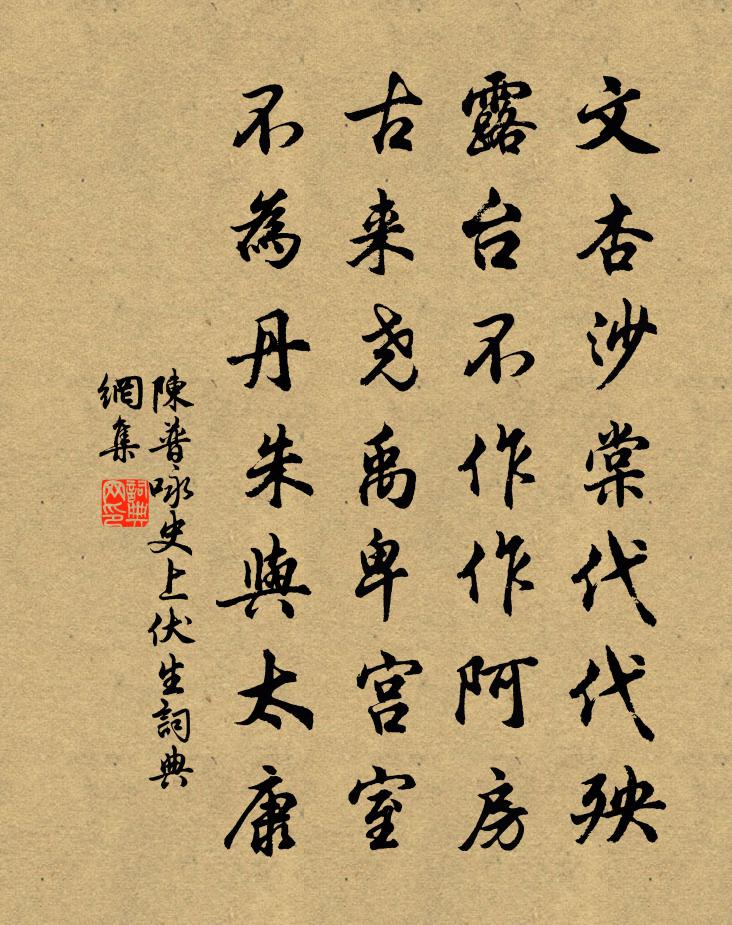 文杏沙棠代代殃
露台不作作阿房
古来尧禹卑宫室
不為丹朱與太康
陳普咏史上伏生詞典
網集
詞典
网印